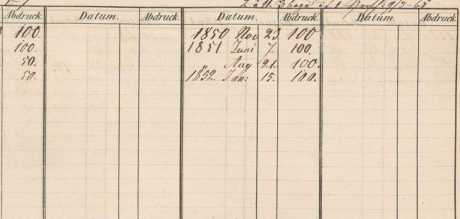 Abdruck. Datum. Abdruck. Datum. Abdruck. Datum. Abdruck.
100. 1850 Nov 23 100
100. 1851 Juni 7. 100.
50. Aug 21. 100.
50. 1852. Jan: 15. 100.